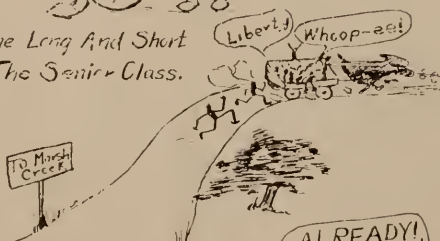 ne Long And Short
The Senior Class.
Liberty!
Whoop-ee!
To Marsh
Creek
ALREADY!